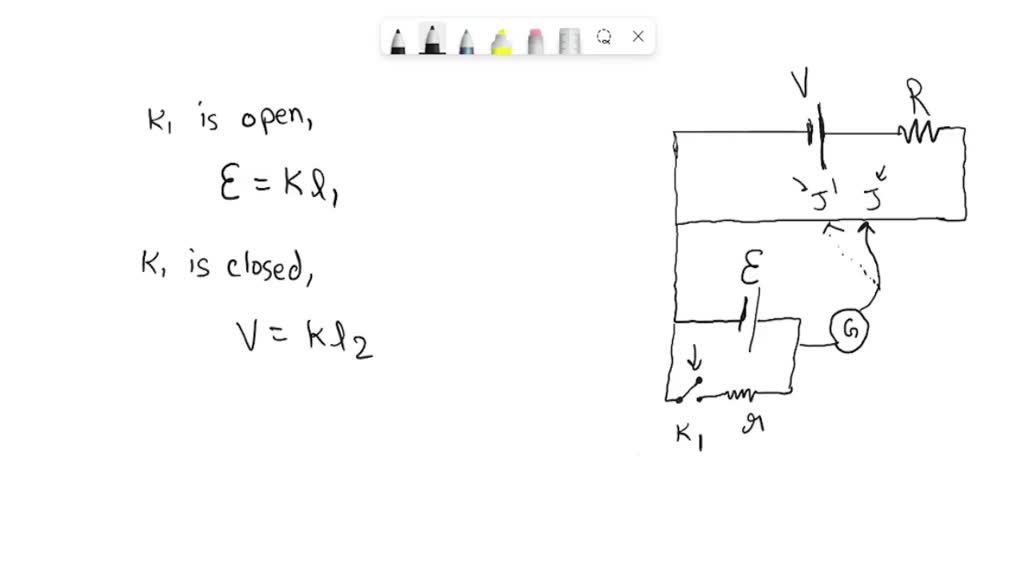 K₁ is open,
Ɛ = Kl₁
K₁ is closed,
V = Kl₂
V
R
J'
J
Ɛ
G
K₁
r